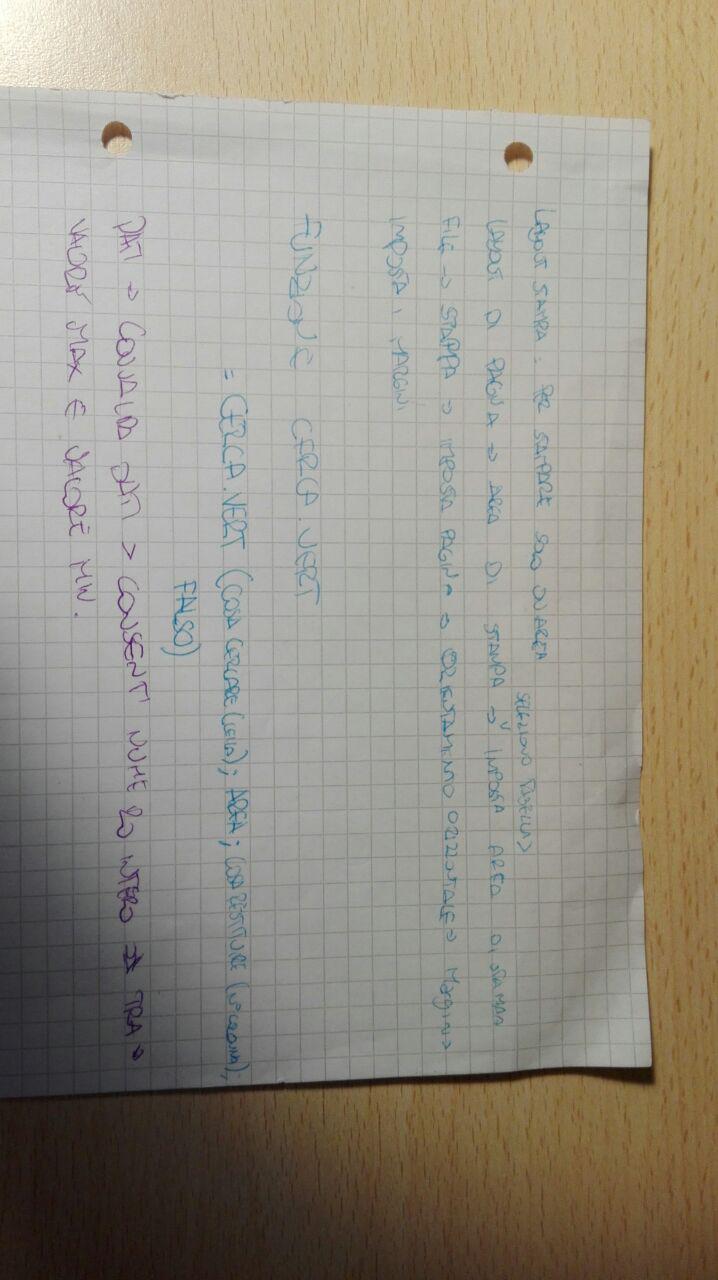 LAYOUT STAMPA: PER STAMPARE SOLO UN'AREA
SELEZIONO TABELLA>
LAYOUT DI PAGINA → AREA DI STAMPA → IMPOSTA AREA DI STAMPA
FILE → STAMPA → IMPOSTA PAGINA → ORIENTAMENTO ORIZZONTALE → Margini →
IMPOSTA I MARGINI
FUNZIONE CERCA.VERT
= CERCA.VERT (COSA CERCARE (CELLA); AREA; COSA RESTITUIRE (N° COLONNA);
FALSO)
DATI → CONVALIDA DATI > CONSENTI NUMERO INTERO → TRA →
VALORE MAX E VALORE MIN.